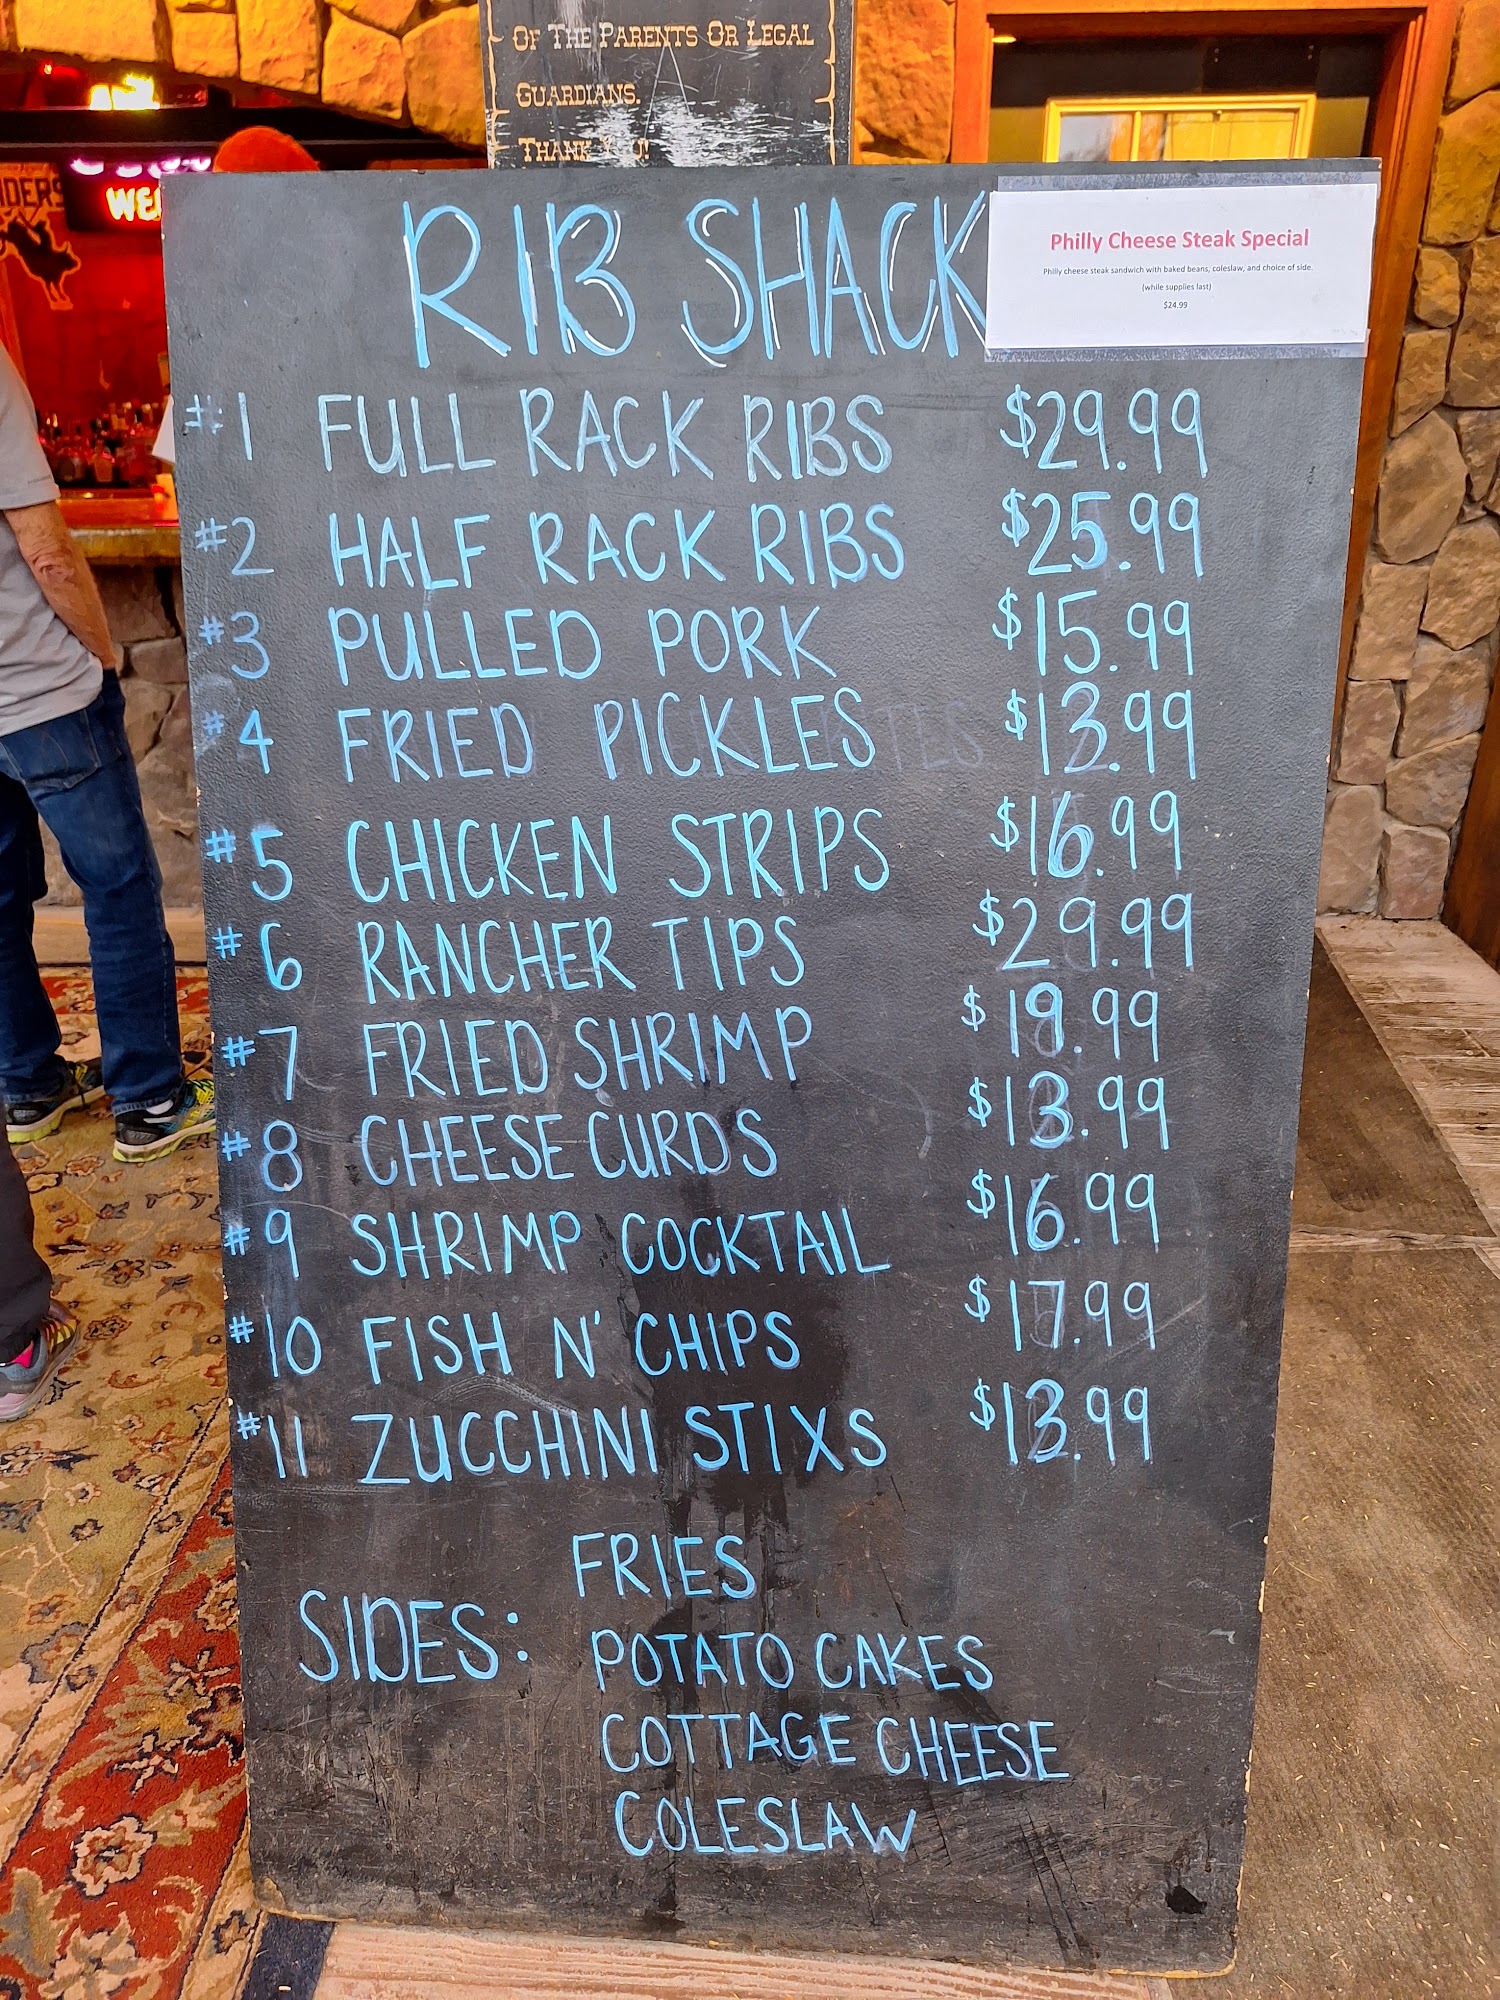 OF THE PARENTS OR LEGAL
GUARDIANS.
THANK YOU!
WE
RIB SHACK
Philly Cheese Steak Special
Philly cheese steak sandwich with baked beans, coleslaw, and choice of side.
(while supplies last)
$24.99
#1 FULL RACK RIBS $29.99
#2 HALF RACK RIBS $25.99
#3 PULLED PORK $15.99
#4 FRIED PICKLES $13.99
#5 CHICKEN STRIPS $16.99
#6 RANCHER TIPS $29.99
#7 FRIED SHRIMP $19.99
#8 CHEESE CURDS $13.99
#9 SHRIMP COCKTAIL $16.99
#10 FISH N' CHIPS $17.99
#11 ZUCCHINI STIXS $13.99
FRIES
SIDES: POTATO CAKES
COTTAGE CHEESE
COLESLAW